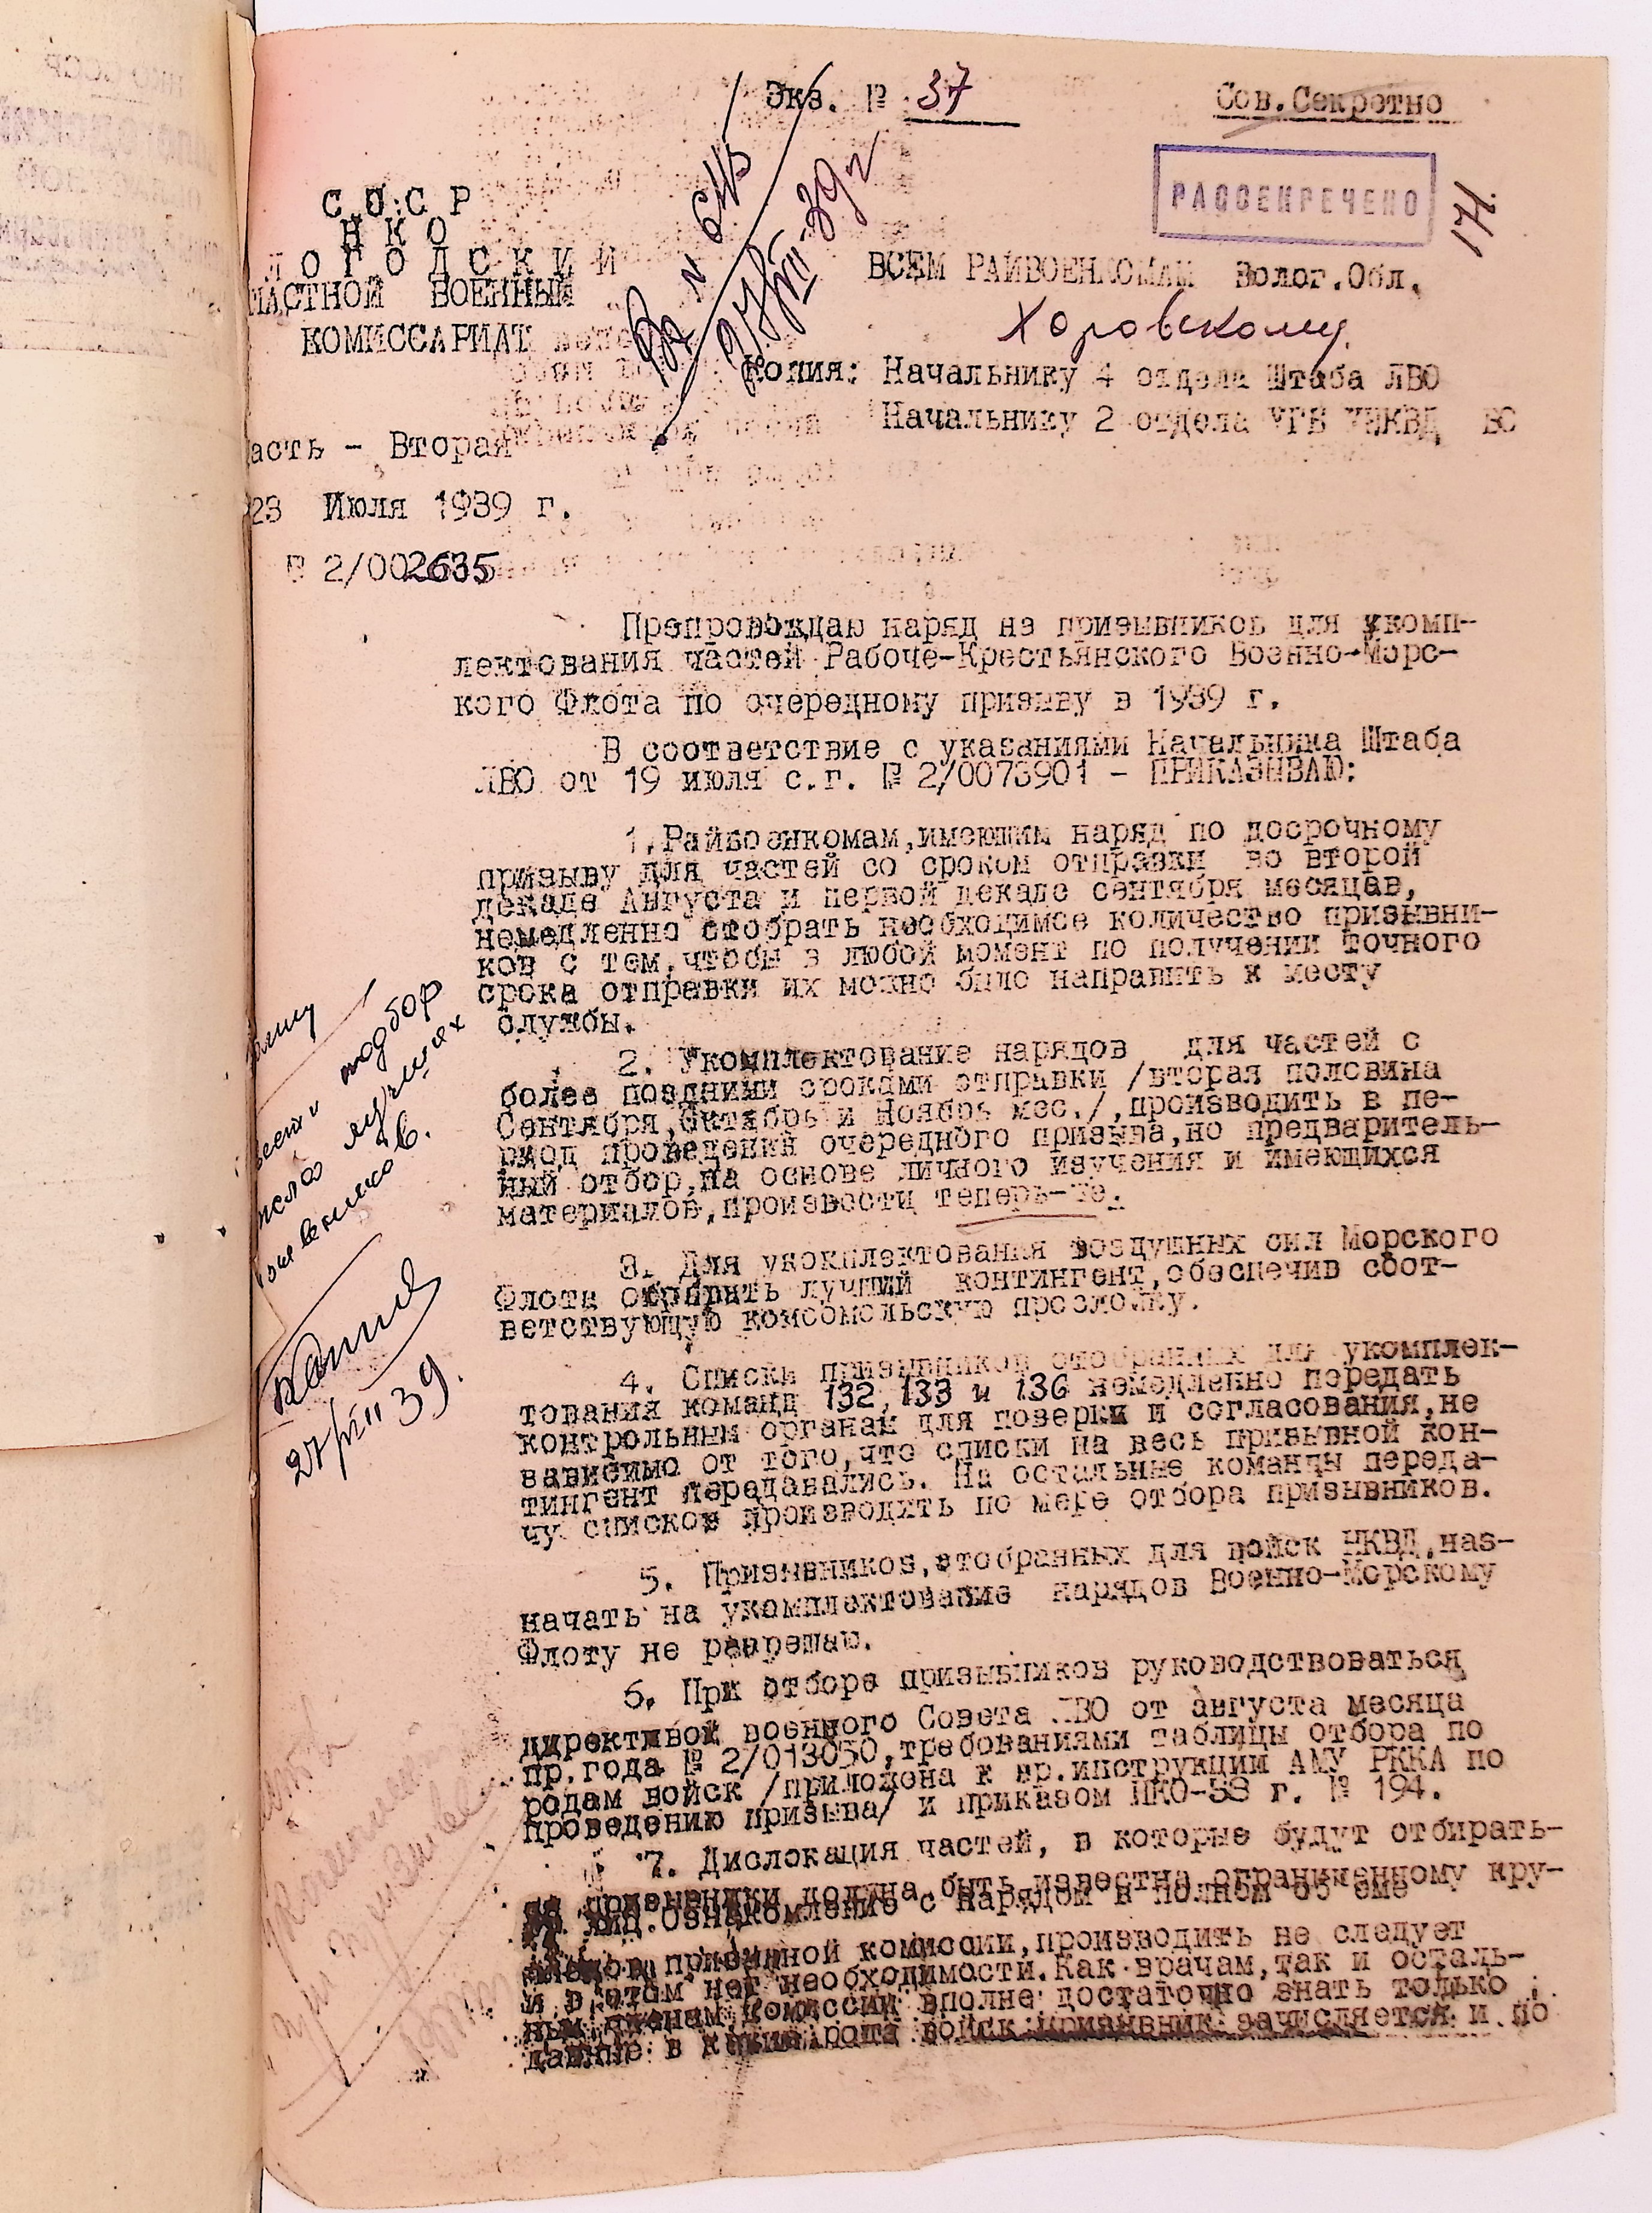 Экз. № 37
Сов.Секретно
РАССЕКРЕЧЕНО
171
С С С Р
Н К О
ЛОГОДСКИЙ
ЛАСТНОЙ ВОЕННЫЙ
КОМИССАРИАТ
Вх N
27/VII-39 г
ВСЕМ РАЙВОЕНКОМАМ Волог.Обл.
Харовскому
Копия: Начальнику 4 отдела Штаба ЛВО
Начальнику 2 отдела УГБ УНКВД ВО
асть - Вторая
23 Июля 1939 г.
№ 2/002635
Препровождаю наряд на призывников для укомп-
лектования частей Рабоче-Крестьянского Военно-Морс-
кого Флота по очередному призыву в 1939 г.
В соответствие с указаниями Начальника Штаба
ЛВО от 19 июля с.г. № 2/0073901 - ПРИКАЗЫВАЮ:
1.Райвоенкомам,имеющим наряд по досрочному
призыву для частей со сроком отправки во второй
декаде Августа и первой декаде сентября месяцав,
немедленно отобрать необходимое количество призывни-
ков с тем,чтобы в любой момент по получении точного
срока отправки их можно было направить к месту
службы.
2. Укомплектование нарядов для частей с
более поздними сроками отправки /вторая половина
Сентября,Октябрь и Ноябрь мес./,производить в пе-
риод проведения очередного призыва,но предваритель-
ный отбор,на основе личного изучения и имеющихся
материалов,произвести теперь-же.
3. Для укомплектования воздушных сил Морского
Флота отобрать лучший контингент,обеспечив соот-
ветствующую комсомольскую прослойку.
4. Списки призывников отобранных для укомплек-
тования команд 132, 133 и 136 немедленно передать
контрольным органам для поверки и согласования,не
зависимо от того,что списки на весь призывной кон-
тингент передавались. На остальные команды переда-
чу списков производить по мере отбора призывников.
5. Призывников,отобранных для войск НКВД,наз-
начать на укомплектование нарядов Военно-Морскому
Флоту не разрешаю.
6. При отборе призывников руководствоваться
директивой военного Совета ЛВО от августа месяца
пр.года № 2/013050,требованиями таблицы отбора по
родам войск /приложена к вр.инструкции АМУ РККА по
проведению призыва/ и приказом НКО-38 г. № 194.
7. Дислокация частей, в которые будут отбирать-
ся призывники должна быть известна ограниченному кру-
гу лиц.Ознакомление с нарядом в полном об'еме
членов призывной комиссии,производить не следует
и в этом нет необходимости.Как врачам,так и осталь-
ным членам комиссии вполне достаточно знать только
данные в какие рода войск призывник зачисляется и по
подбор
лучших
27/VII 39.